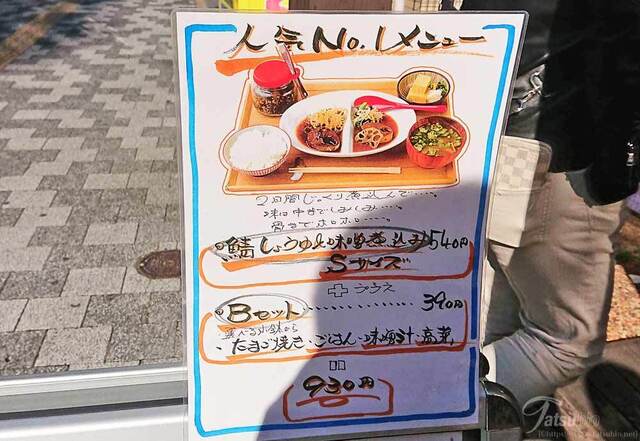 人気No.1メニュー
2日間じっくり煮込んで...。
味は中までしみしみ...。
骨までホロホロ...。
鯖しょうゆ&味噌煮込み540円
Sサイズ
+プラス
Bセット 390円
選べる小鉢から
・たまご焼き・ごはん・味噌汁・高菜
930円
Tatsuhin